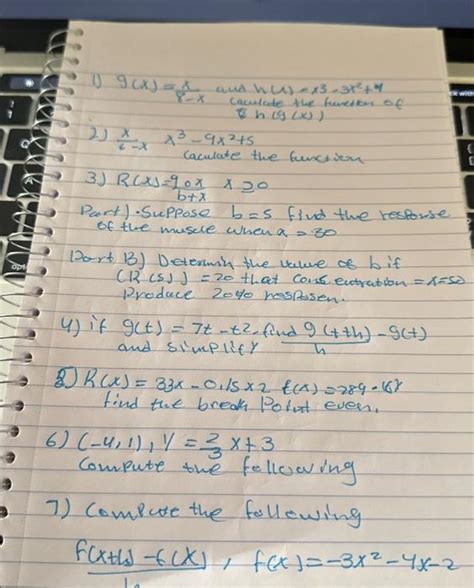 1) g(x) = x/8-x and h(x) = x3 - 3x2 + 4
Caculate the function of
h(g(x))
2) x/6-x x3 - 9x2+5
Caculate the function
3) R(x) = 90x/b+x x ≥ 0
Part) . Suppose b = 5 find the response
of the muscle when a = 30
Part B) Determin the value of b if
(R(5)) = 20 that
Produce 20% resposen.
4) if g(t) = 7t - t2 - find g(t+h) - g(t)/h
and simplify
R(x) = 33x - 0.15x2 f(x) = 289
find the break Point even.
6) (-4,1), Y = 2/3 x + 3
Compute the following
7) Compute the following
f(x+h) - f(x), f(x) = -3x2 - 4x - 2